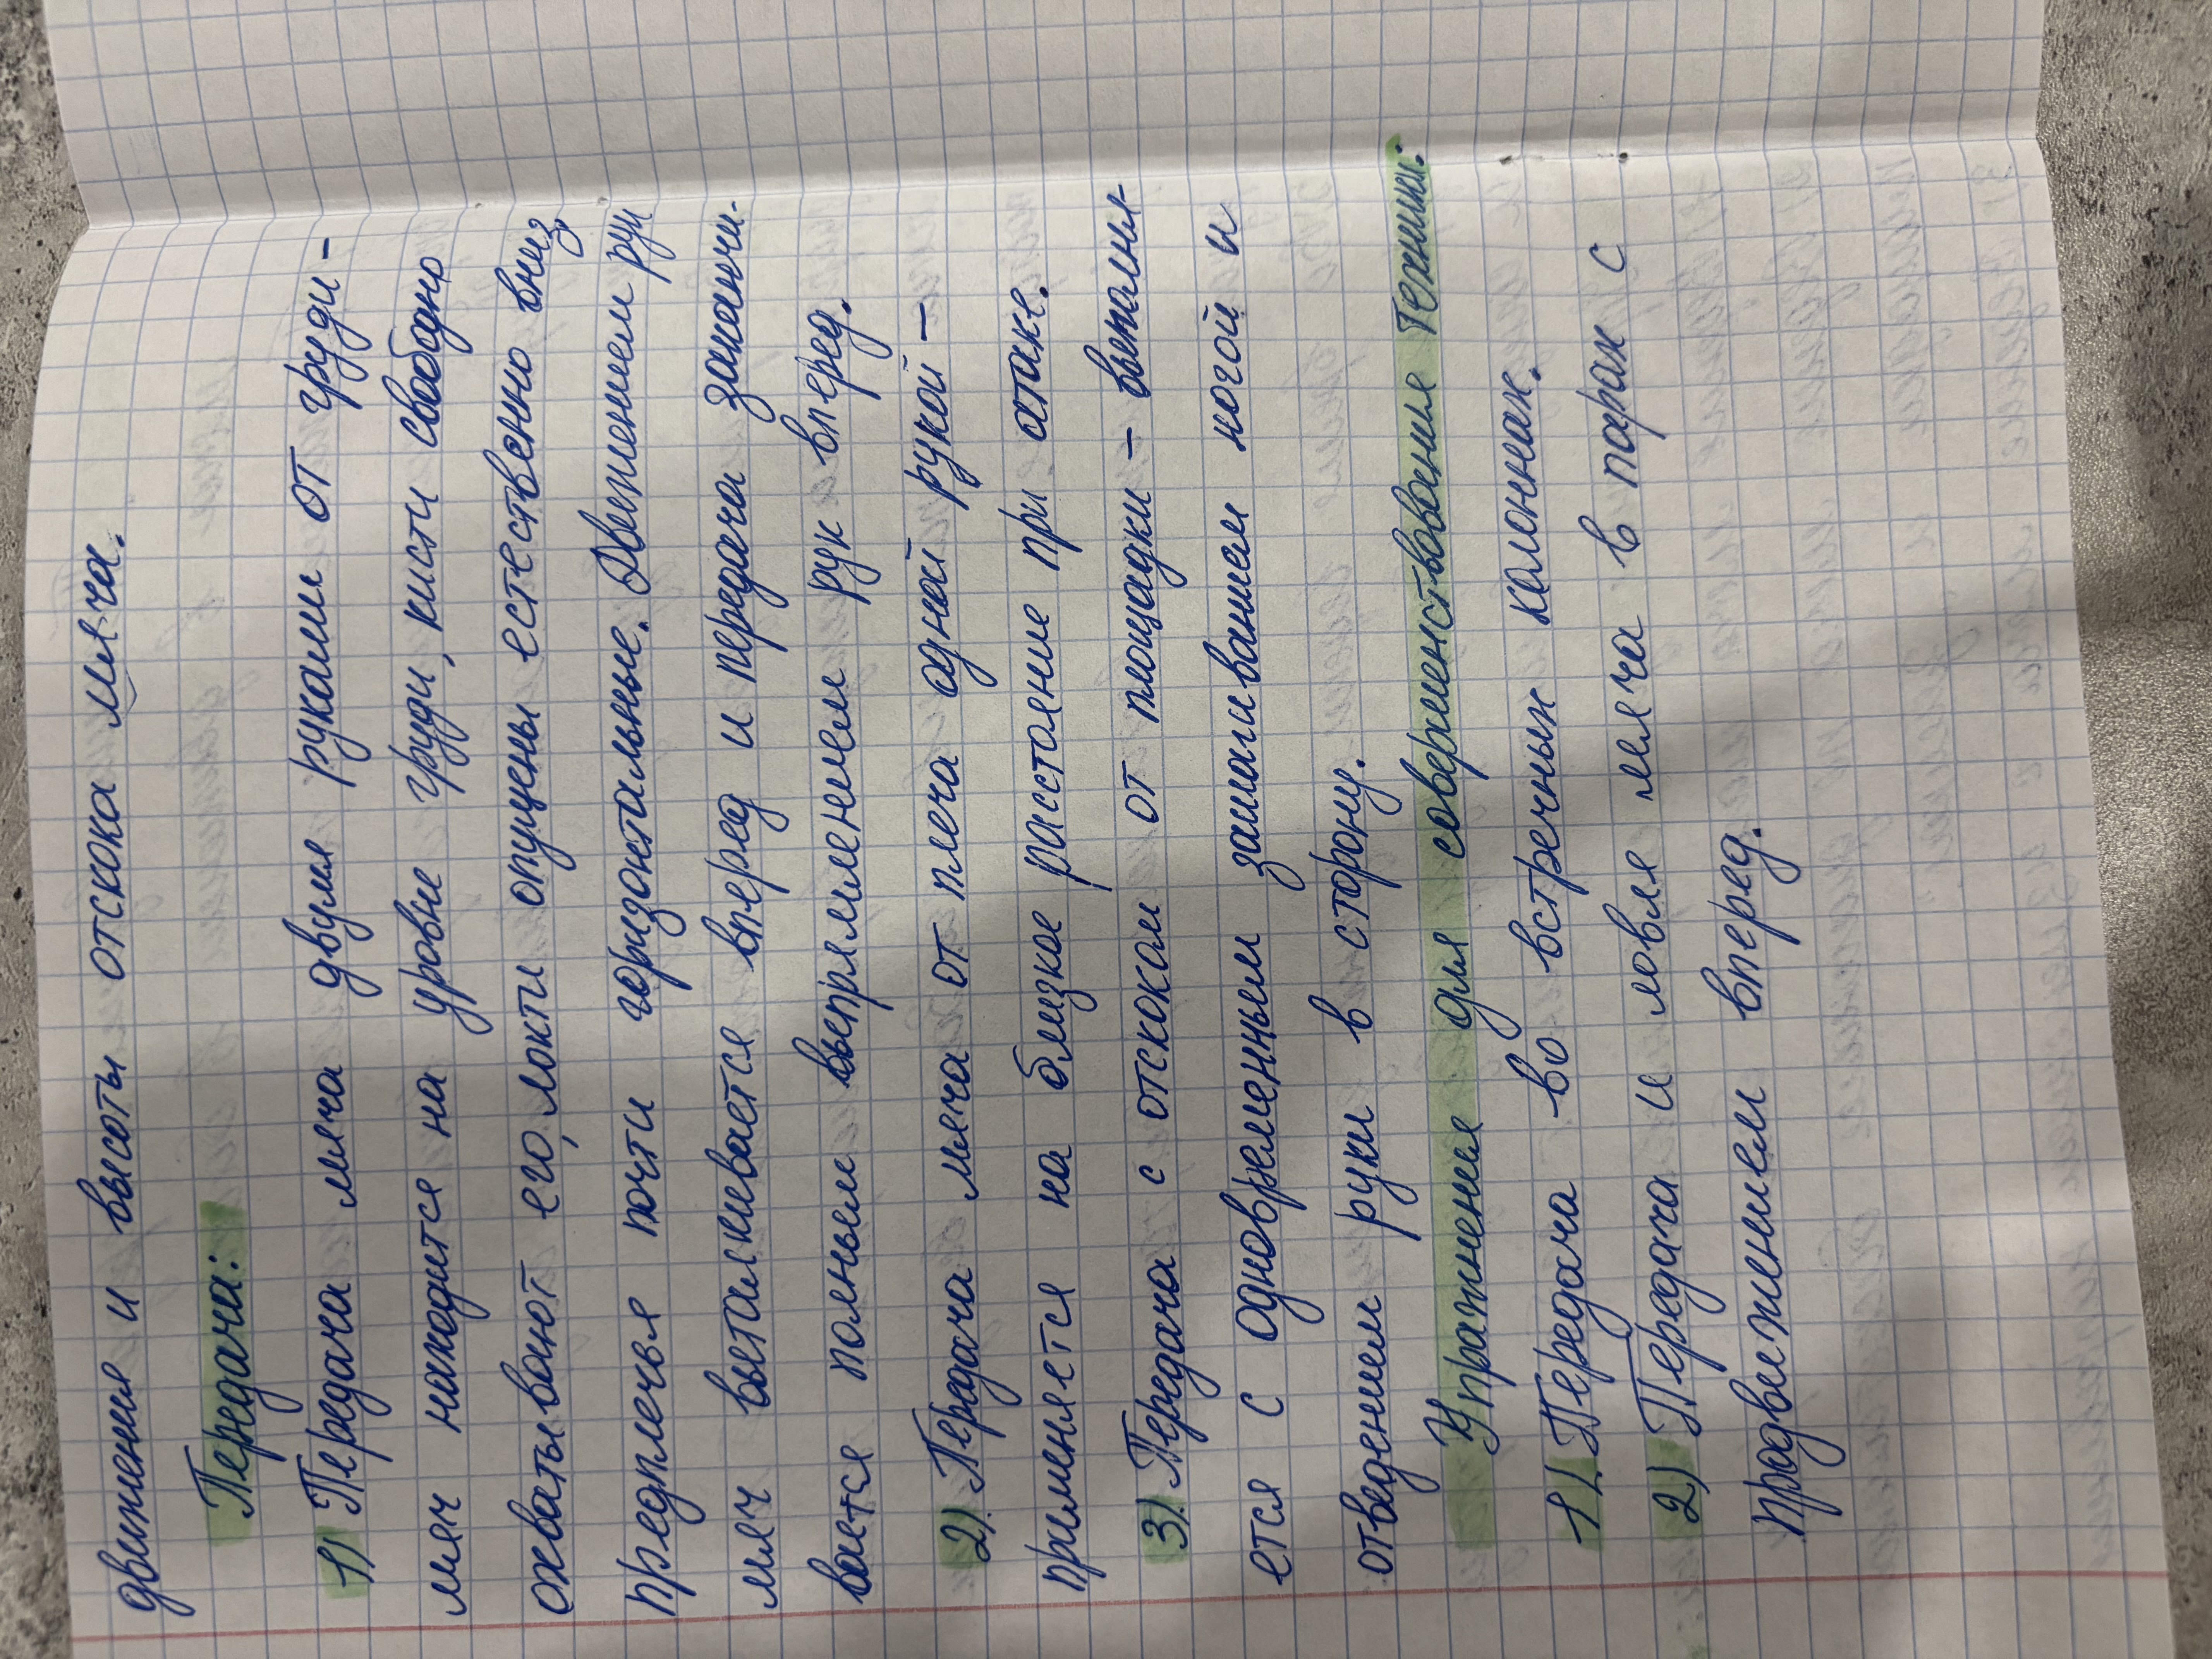 движения и высоты отскока мяча.
Передача:
1) Передача мяча двумя руками от груди -
мяч находится на уровне груди, кисти свободно
охватывают его, локти опущены естественно вниз,
предплечья почти горизонтальные. Движением рук
мяч выталкивается вперед и передача заканчи-
вается полным выпрямлением рук вперед.
2) Передача мяча от плеча одной рукой -
применяется на близкое расстояние при атаке.
3) Передача с отскоком от площадки - выполня-
ется с одновременным зашагиванием ногой и
отведением руки в сторону.
Упражнения для совершенствования техники:
1) Передача во встречных колоннах.
2) Передача и ловля мяча в парах с
продвижением вперед.